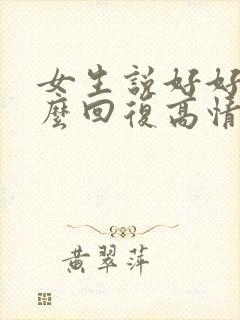 女生說好好
麼回復高情
黃翠萍